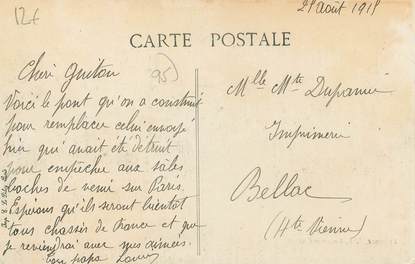 12f
28 août 1915
CARTE POSTALE
95
Cheri
Voici le pont qu'on a construit
pour remplacer celui envoyé
hier qu'avait été détruit
pour empêche aux sales
boches de venir sur Paris.
Espérons qu'ils seront bientôt
tous chassés de France et que
je reviendrai avec mes aimées.
Ton papa
Mlle Mte
Imprimerie
Bellac
(Hte Vienne)